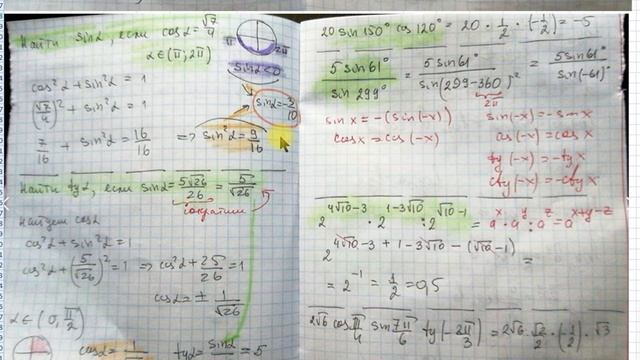 Найти sinα, если cosα = √7/4
α∈(π; 2π)
π 2π
sinα<0
cos²α + sin²α = 1
(√7/4)² + sin²α = 1
7/16 + sin²α = 16/16 => sin²α = 9/16
Найти tgα, если sinα = 5√26/26 = 5/√26
сократим
Найдем cosα
cos²α + sin²α = 1
cos²α + (5/√26)² = 1 => cos²α + 25/26 = 1
cosα = ± 1/√26
α∈(0, π/2)
tgα = sinα = 5
20 sin 150° cos 120° = 20 · 1/2 · (-1/2) = -5
5 sin61°/sin 299° = 5 sin61°/sin(299-360)° = 5 sin61°/sin(-61)°
2π
sin x = -(sin(-x)) sin(-x) = -sin x
cos x = cos(-x) cos(-x) = cos x
tg(-x) = -tg x
ctg(-x) = -ctg x
2^(4√10-3) · 2^(1-3√10) : 2^(√10-1) = a^x · a^y : a^z = a^(x+y-z)
2^(4√10-3 + 1-3√10 - (√10-1)) =
= 2^(-1) = 1/2 = 0,5
2√6 cos π/4 sin 7π/6 tg(-2π/3) = 2√6 · √2/2 · (-1/2) · √3